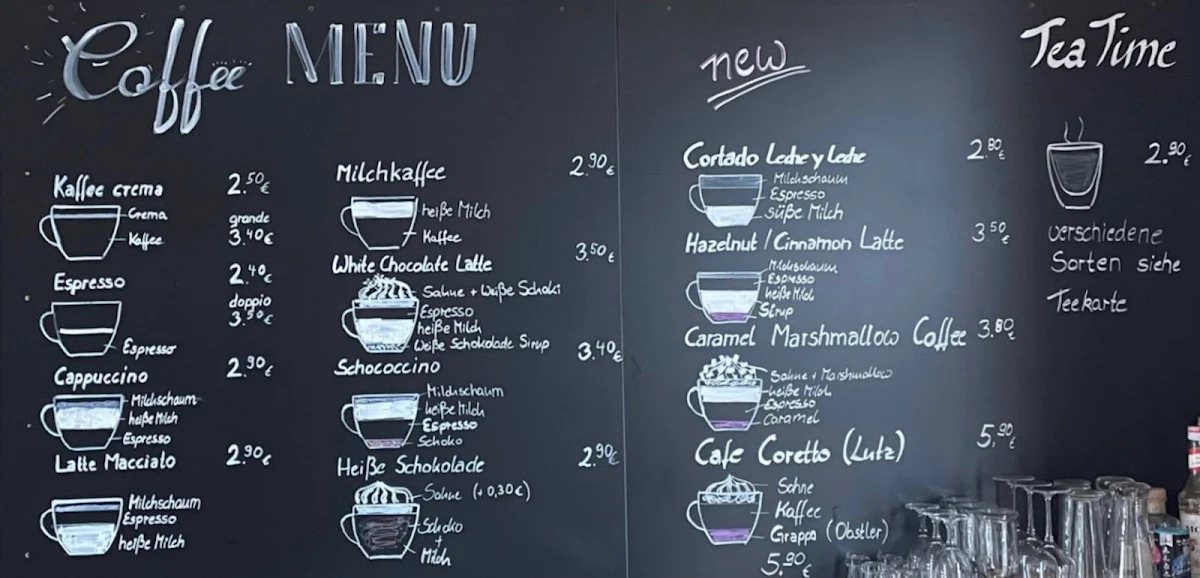 Coffee MENU
Kaffee crema 2.50€
Crema
Kaffee
grande
3.40€
Espresso 2.40€
doppio
3.50€
Espresso
Cappuccino 2.90€
Milchschaum
heiße Milch
Espresso
Latte Macciato 2.90€
Milchschaum
Espresso
heiße Milch
Milchkaffee 2.90€
heiße Milch
Kaffee
White Chocolate Latte 3.50€
Sahne + Weiße Schoki
Espresso
heiße Milch
Weiße Schokolade Sirup
Schococcino 3.40€
Milchschaum
heiße Milch
Espresso
Schoko
Heiße Schokolade 2.90€
Sahne (+0,30€)
Schoko
+
Milch
new
Cortado Leche y Leche 2.80€
Milchschaum
Espresso
süße Milch
Hazelnut / Cinnamon Latte 3.50€
Milchschaum
Espresso
heiße Milch
Sirup
Caramel Marshmallow Coffee 3.80€
Sahne + Marshmallow
heiße Milch
Espresso
Caramel
Cafe Coretto (Lutz) 5.90€
Sahne
Kaffee
Grappa (Obstler)
5.90€
Tea Time
2.90€
verschiedene
Sorten siehe
Teekarte